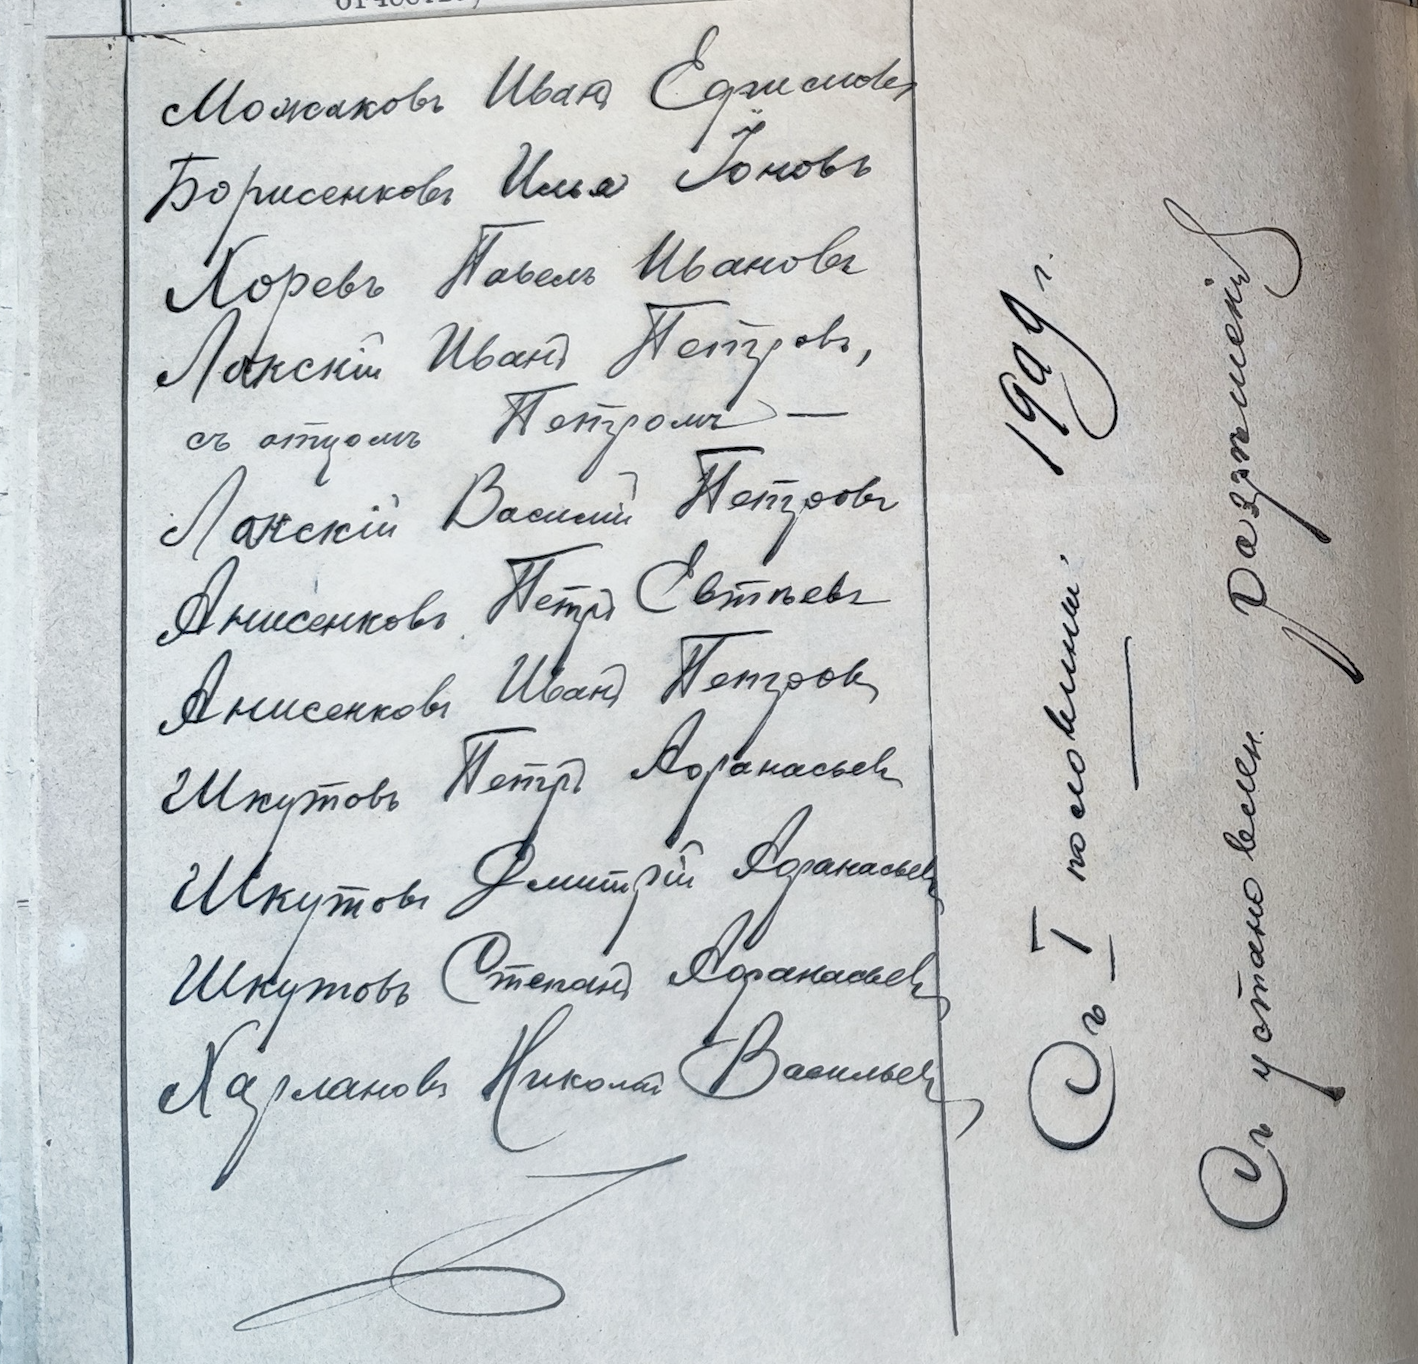 Можаковъ Иванъ Ефимовъ
Борисенковъ Илья Іоновъ
Хоревъ Павелъ Ивановъ
Лакскій Иванъ Петровъ,
съ отцомъ Петромъ —
Лакскій Василій Петровъ
Анисенковъ Петръ Евтѣевъ
Анисенковъ Иванъ Петровъ
Шкутовъ Петръ Афанасьев
Шкутовъ Дмитрій Афанасьев
Шкутовъ Степанъ Афанасьев
Харлановъ Николай Васильев
Съ I половины 1909 г.
Съ установлен. разрѣшенія